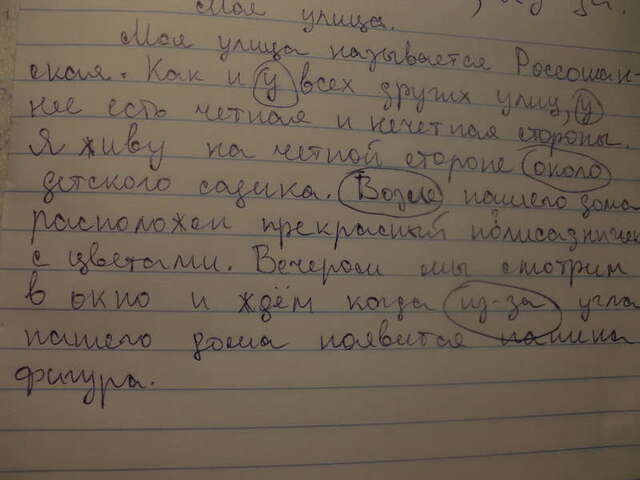 Моя улица.
Моя улица называется Россошан-
ская. Как и у всех других улиц, у
нее есть четная и нечетная стороны.
Я живу на четной стороне около
детского садика. Возле нашего дома
расположен прекрасный полисадничек
с цветами. Вечером мы смотрим
в окно и ждём когда из-за угла
нашего дома появится папина
фигура.